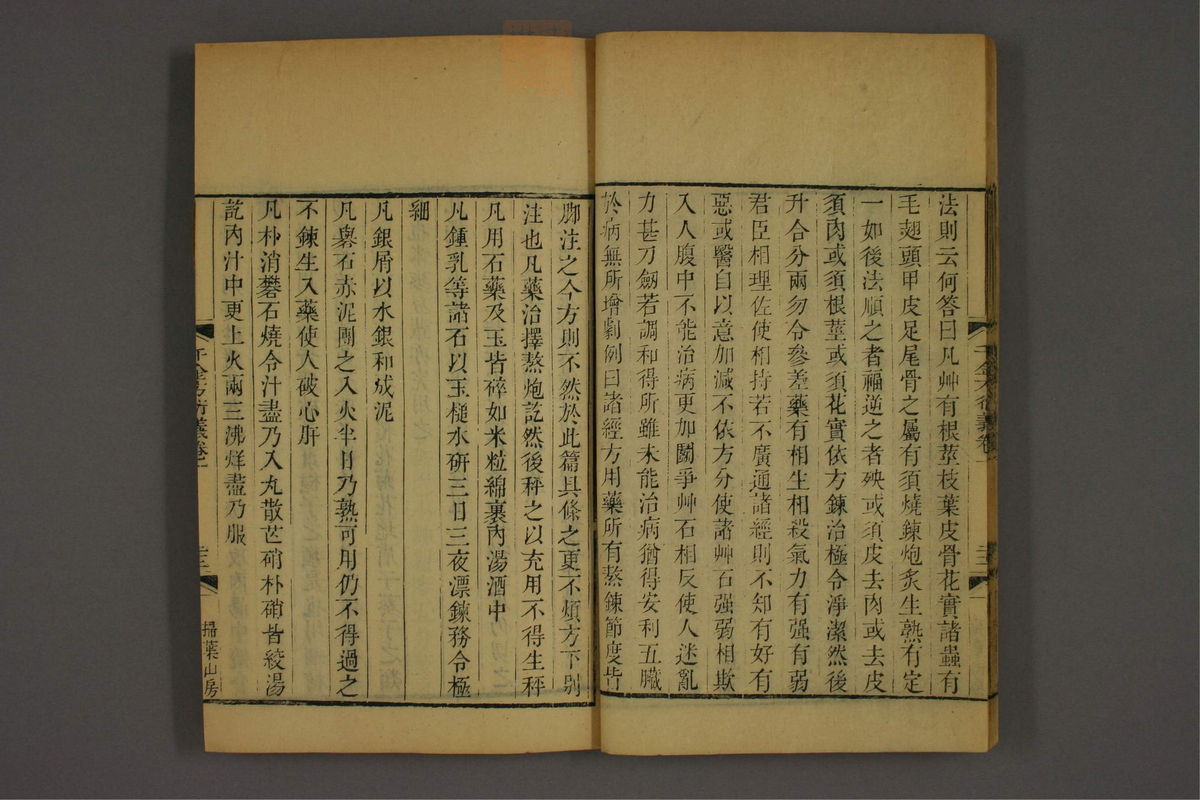 法則云何答曰凡艸有根莖枝葉皮骨花實諸蟲有
毛翅頭甲皮足尾骨之屬有須燒鍊炮炙生熟有定
一如後法順之者福逆之者殃或須皮去肉或去皮
須肉或須根莖或須花實依方鍊治極令淨潔然後
升合分兩勿令參差藥有相生相殺氣力有强有弱
君臣相理佐使相持若不廣通諸經則不知有好有
惡或醫自以意加減不依方分使諸艸石强弱相欺
入人腹中不能治病更加鬭爭艸石相反使人迷亂
力甚刀劒若調和得所雖未能治病猶得安利五臟
於病無所增劇例曰諸經方用藥所有熬鍊節度皆
千金方衍義卷一
脚注之今方則不然於此篇具條之更不煩方下别
注也凡藥治擇熬炮訖然後秤之以充用不得生秤
凡用石藥及玉皆碎如米粒綿裹內湯酒中
凡鍾乳等諸石以玉槌水研三日三夜漂鍊務令極
細
凡銀屑以水銀和成泥
凡礜石赤泥團之入火半日乃熟可用仍不得過之
不鍊生入藥使人破心肝
凡朴消礬石燒令汁盡乃入丸散芒硝朴硝皆絞湯
訖內汁中更上火兩三沸烊盡乃服
千金方衍義卷一
掃葉山房